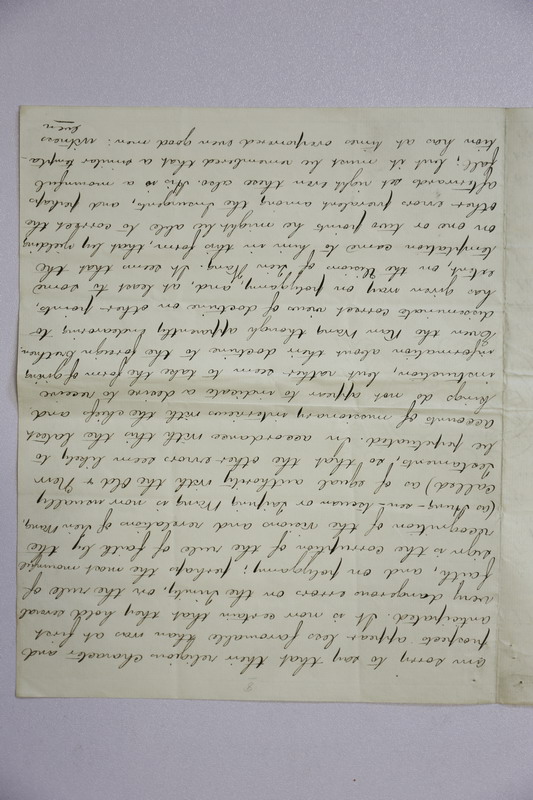 am sorry to say that their religious character and
prospects appear less favorable than was at first
anticipated. It is now certain that they hold several
very dangerous errors on the Trinity, on the rule of
faith, and on polygamy; perhaps the most mournful
sign is the corruption of the rule of faith by the
recognition of the visions and revelation of Tien Wang
(as Hung-seu-tseuen or Taiping Wang is now usually
called) as of equal authority with the Old & New
Testaments, so that the other errors seem likely to
be perpetuated. In accordance with this the latest
accounts of missionary interviews with the chiefs and
kings do not appear to indicate a desire to receive
instruction, but rather seem to take the form of giving
information about their doctrine to the foreign brethren.
Even the Kan Wang though apparently endeavoring to
disseminate correct views of doctrine on other points,
has given way on polygamy, and, at least to some
extent, on the Visions of Tien Wang. It seems that the
temptation came to him in this form, that by yielding
on one or two points he might be able to correct the
other errors prevalent among the Insurgents, and perhaps
afterwards set right even these also. This is a mournful
fall; but it must be remembered that a similar tempta-
tion has at times overpowered even good men: witness
even